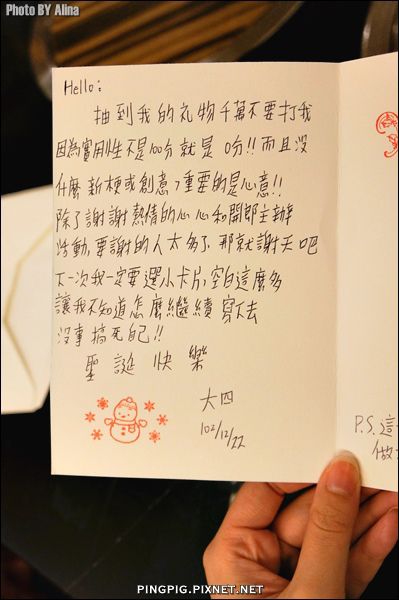 Photo BY Alina
Hello:
抽到我的礼物千萬不要打我
因為實用性不是100分就是0分!!而且沒
什麼新梗或創意,重要的是心意!!
除了謝謝熱情的心心和開郎主辦
活動,要謝的人太多了,那就謝天吧
下一次我一定要選小卡片,空白這麼多
讓我不知道怎麼繼續寫下去
沒事搞死自己!!
聖誕快樂
大四
102/12/22
P.S.這
做
PINGPIG.PIXNET.NET